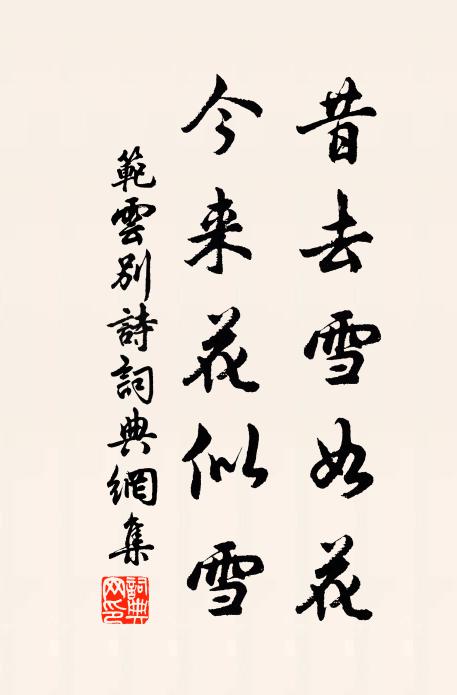 昔去雪如花
今来花似雪
範雲别詩詞典網集
詞典网印